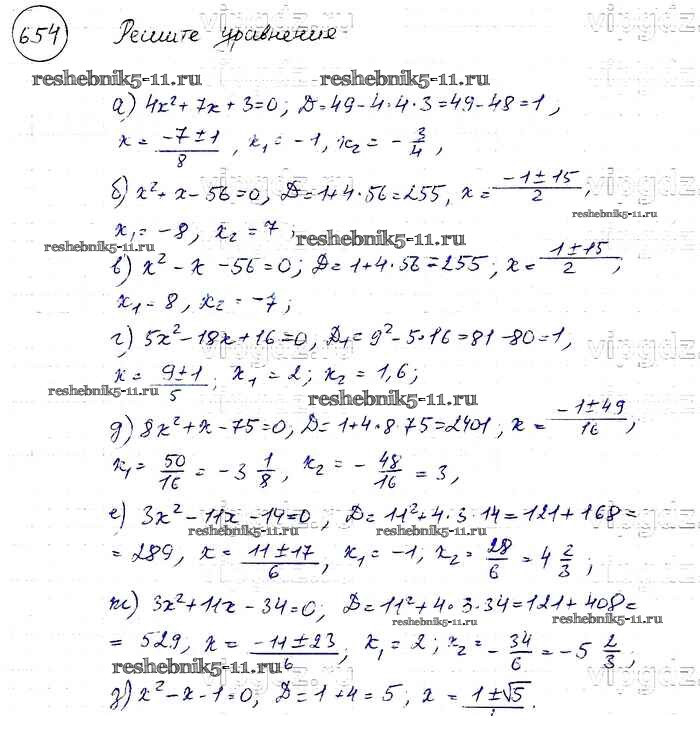 654 Решите уравнения vipgdz
reshebnik5-11.ru reshebnik5-11.ru
а) 4x² + 7x + 3 = 0; D = 49 - 4·4·3 = 49 - 48 = 1,
x = (-7 ± 1)/8, x₁ = -1, x₂ = -3/4,
vipgdz
б) x² + x - 56 = 0; D = 1 + 4·56 = 255, x = (-1 ± 15)/2,
reshebnik5-11.ru
x₁ = -8, x₂ = 7;
reshebnik5-11.ru reshebnik5-11.ru
в) x² - x - 56 = 0; D = 1 + 4·56 = 255; x = (1 ± 15)/2;
x₁ = 8, x₂ = -7;
г) 5x² - 18x + 16 = 0, D₁ = 9² - 5·16 = 81 - 80 = 1,
vipgdz
x = (9 ± 1)/5; x₁ = 2; x₂ = 1,6;
reshebnik5-11.ru reshebnik5-11.ru
д) 8x² + x - 75 = 0; D = 1 + 4·8·75 = 2401, x = (-1 ± 49)/16;
x₁ = 50/16 = -3 1/8, x₂ = -48/16 = 3,
е) 3x² - 11x - 14 = 0, D = 11² + 4·3·14 = 121 + 168 =
= 289, x = (11 ± 17)/6, x₁ = -1; x₂ = 28/6 = 4 2/3;
ж) 3x² + 11x - 34 = 0; D = 11² + 4·3·34 = 121 + 408 =
reshebnik5-11.ru
= 529, x = (-11 ± 23)/6; x₁ = 2; x₂ = -34/6 = -5 2/3;
reshebnik5-11.ru
з) x² - x - 1 = 0, D = 1 + 4 = 5, x = (1 ± √5)/